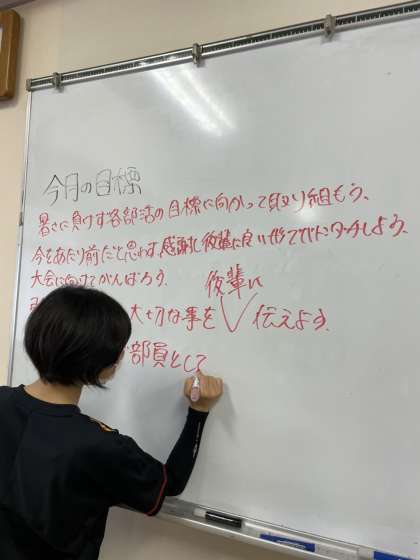 今月の目標
暑さに負けず各部活の目標に向かって取り組もう、
今をあたり前だと思わず、感謝し後輩に良い形でバトンタッチしよう。
大会に向けてがんばろう。
大切な事を後輩に伝えよう。
部員として